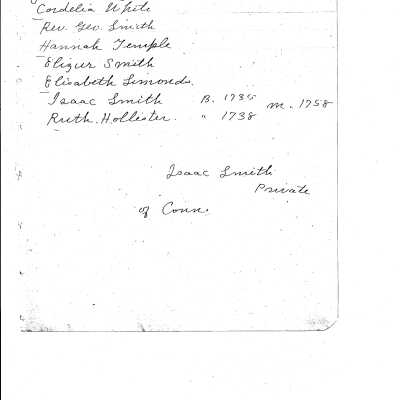 Cordelia White
Rev. Geo. Smith
Hannah Temple
Elizur Smith
Elisabeth Simonds.
Isaac Smith B. 1735 m. 1758
Ruth Hollister. " 1738
Isaac Smith
Private
of Conn.